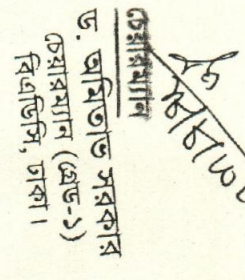 চেয়ারম্যান
ড. অমিতাভ সরকার
চেয়ারম্যান (গ্রেড-১)
বিএডিসি, ঢাকা।